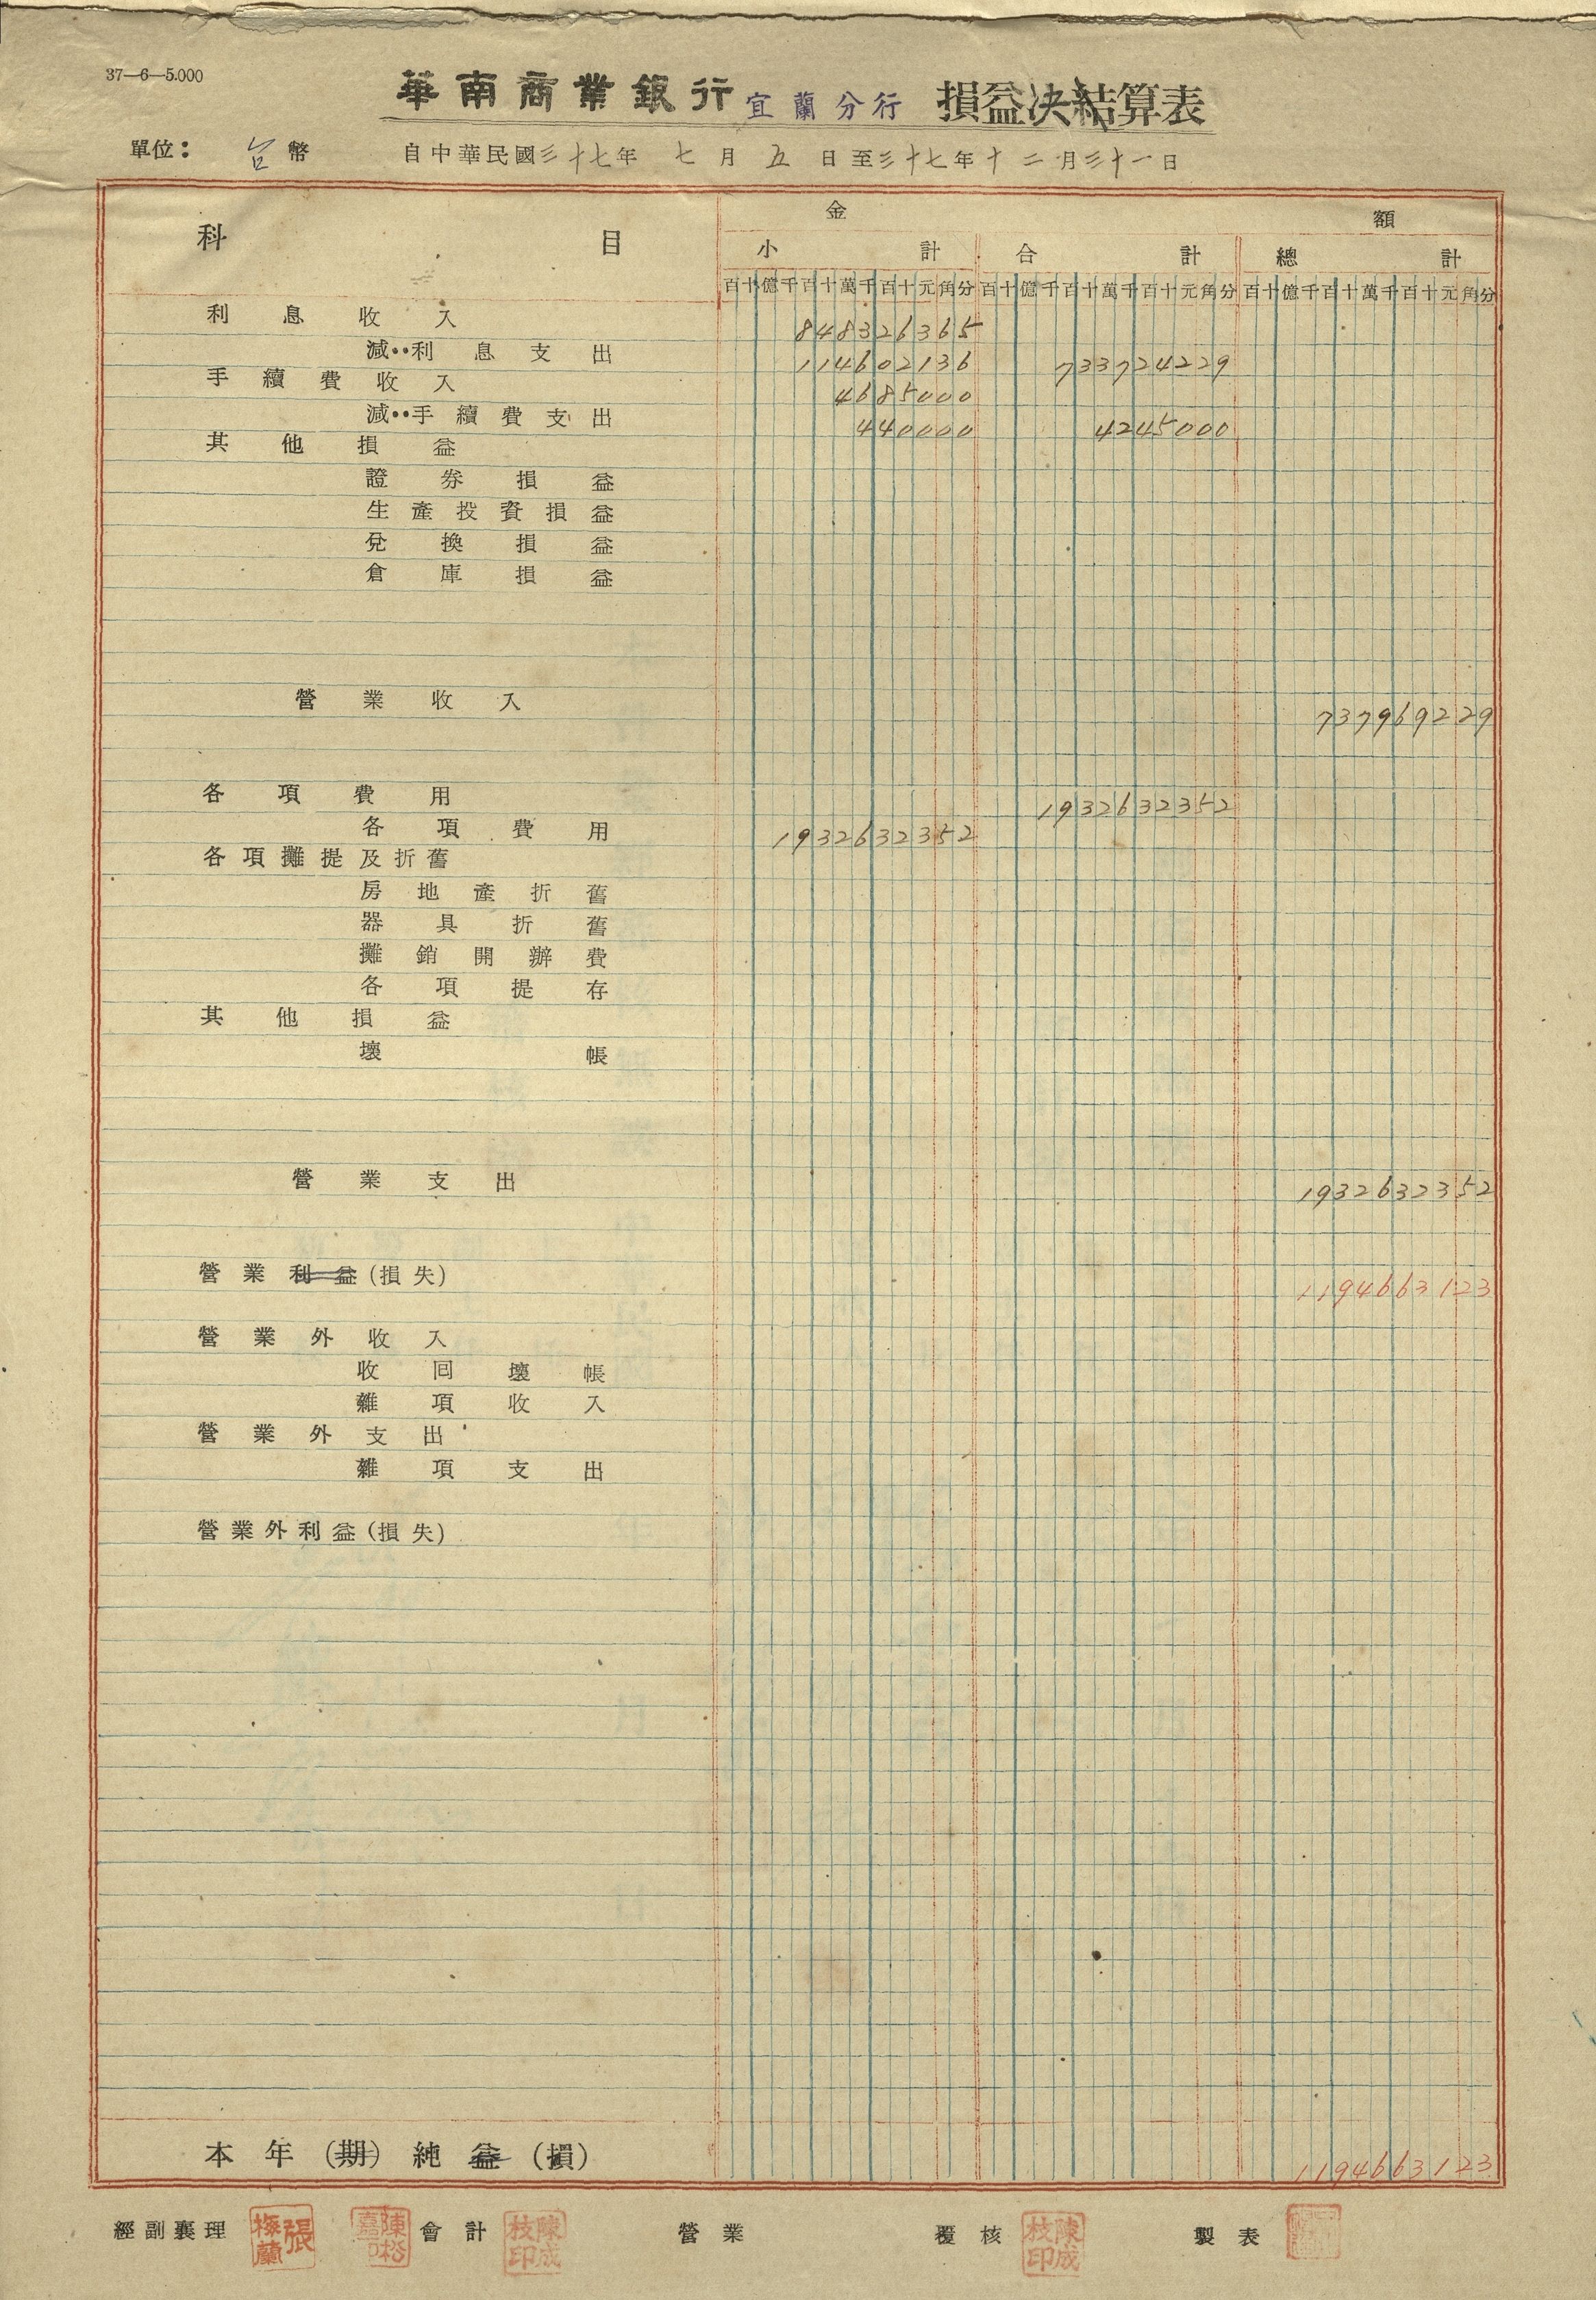 37—6—5.000
華南商業銀行宜蘭分行 損益決結算表
單位：台幣 自中華民國三十七年七月五日至三十七年十二月三十一日
科目 金額
小計 合計 總計
百十億千百十萬千百十元角分 百十億千百十萬千百十元角分 百十億千百十萬千百十元角分
利息收入 848326365
減：利息支出 114602136 733724229
手續費收入 4685000
減：手續費支出 440000 4245000
其他損益
證券損益
生產投資損益
兌換損益
倉庫損益
營業收入 737969229
各項費用 1932632352
各項費用 1932632352
各項攤提及折舊
房地產折舊
器具折舊
攤銷開辦費
各項提存
其他損益
壞帳
營業支出 1932632352
營業利益(損失) 1194663123
營業外收入
收回壞帳
雜項收入
營業外支出
雜項支出
營業外利益(損失)
本年(期)純益(損) 1194663123
經副襄理 張梅蘭 陳松嘉印 會計 陳成枝印 營業 覆核 陳成枝印 製表